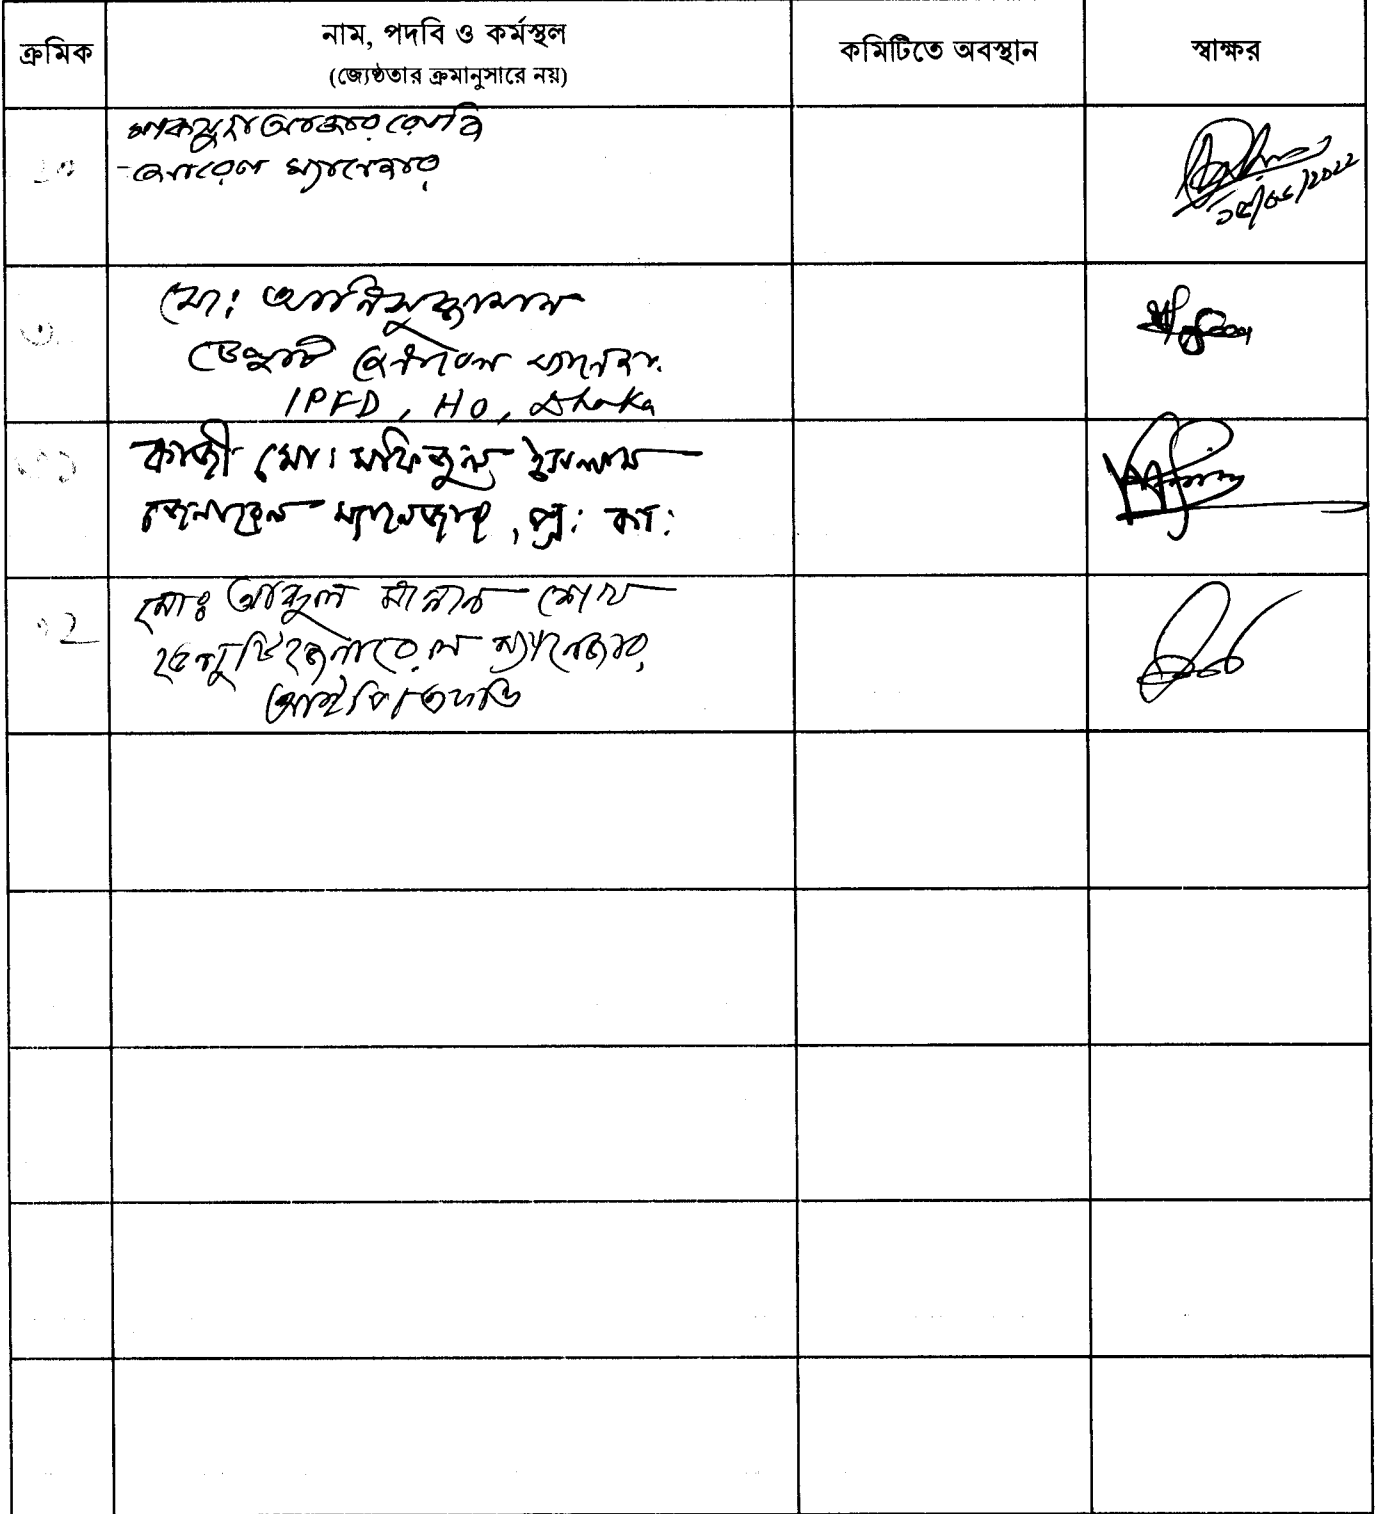 ক্রমিক
নাম, পদবি ও কর্মস্থল
(জ্যেষ্ঠতার ক্রমানুসারে নয়)
কমিটিতে অবস্থান
স্বাক্ষর
ম্যানেজার
১৫/০৬/২০২২
মো: আনিসুজ্জামান
ডেপুটি জেনারেল ম্যানেজার
IPFD, HO, Dhaka
কাজী মো: মফিজুল ইসলাম
জেনারেল ম্যানেজার, প্র: কা:
১২
মোঃ আব্দুল মান্নান শেখ
ডেপুটি জেনারেল ম্যানেজার,